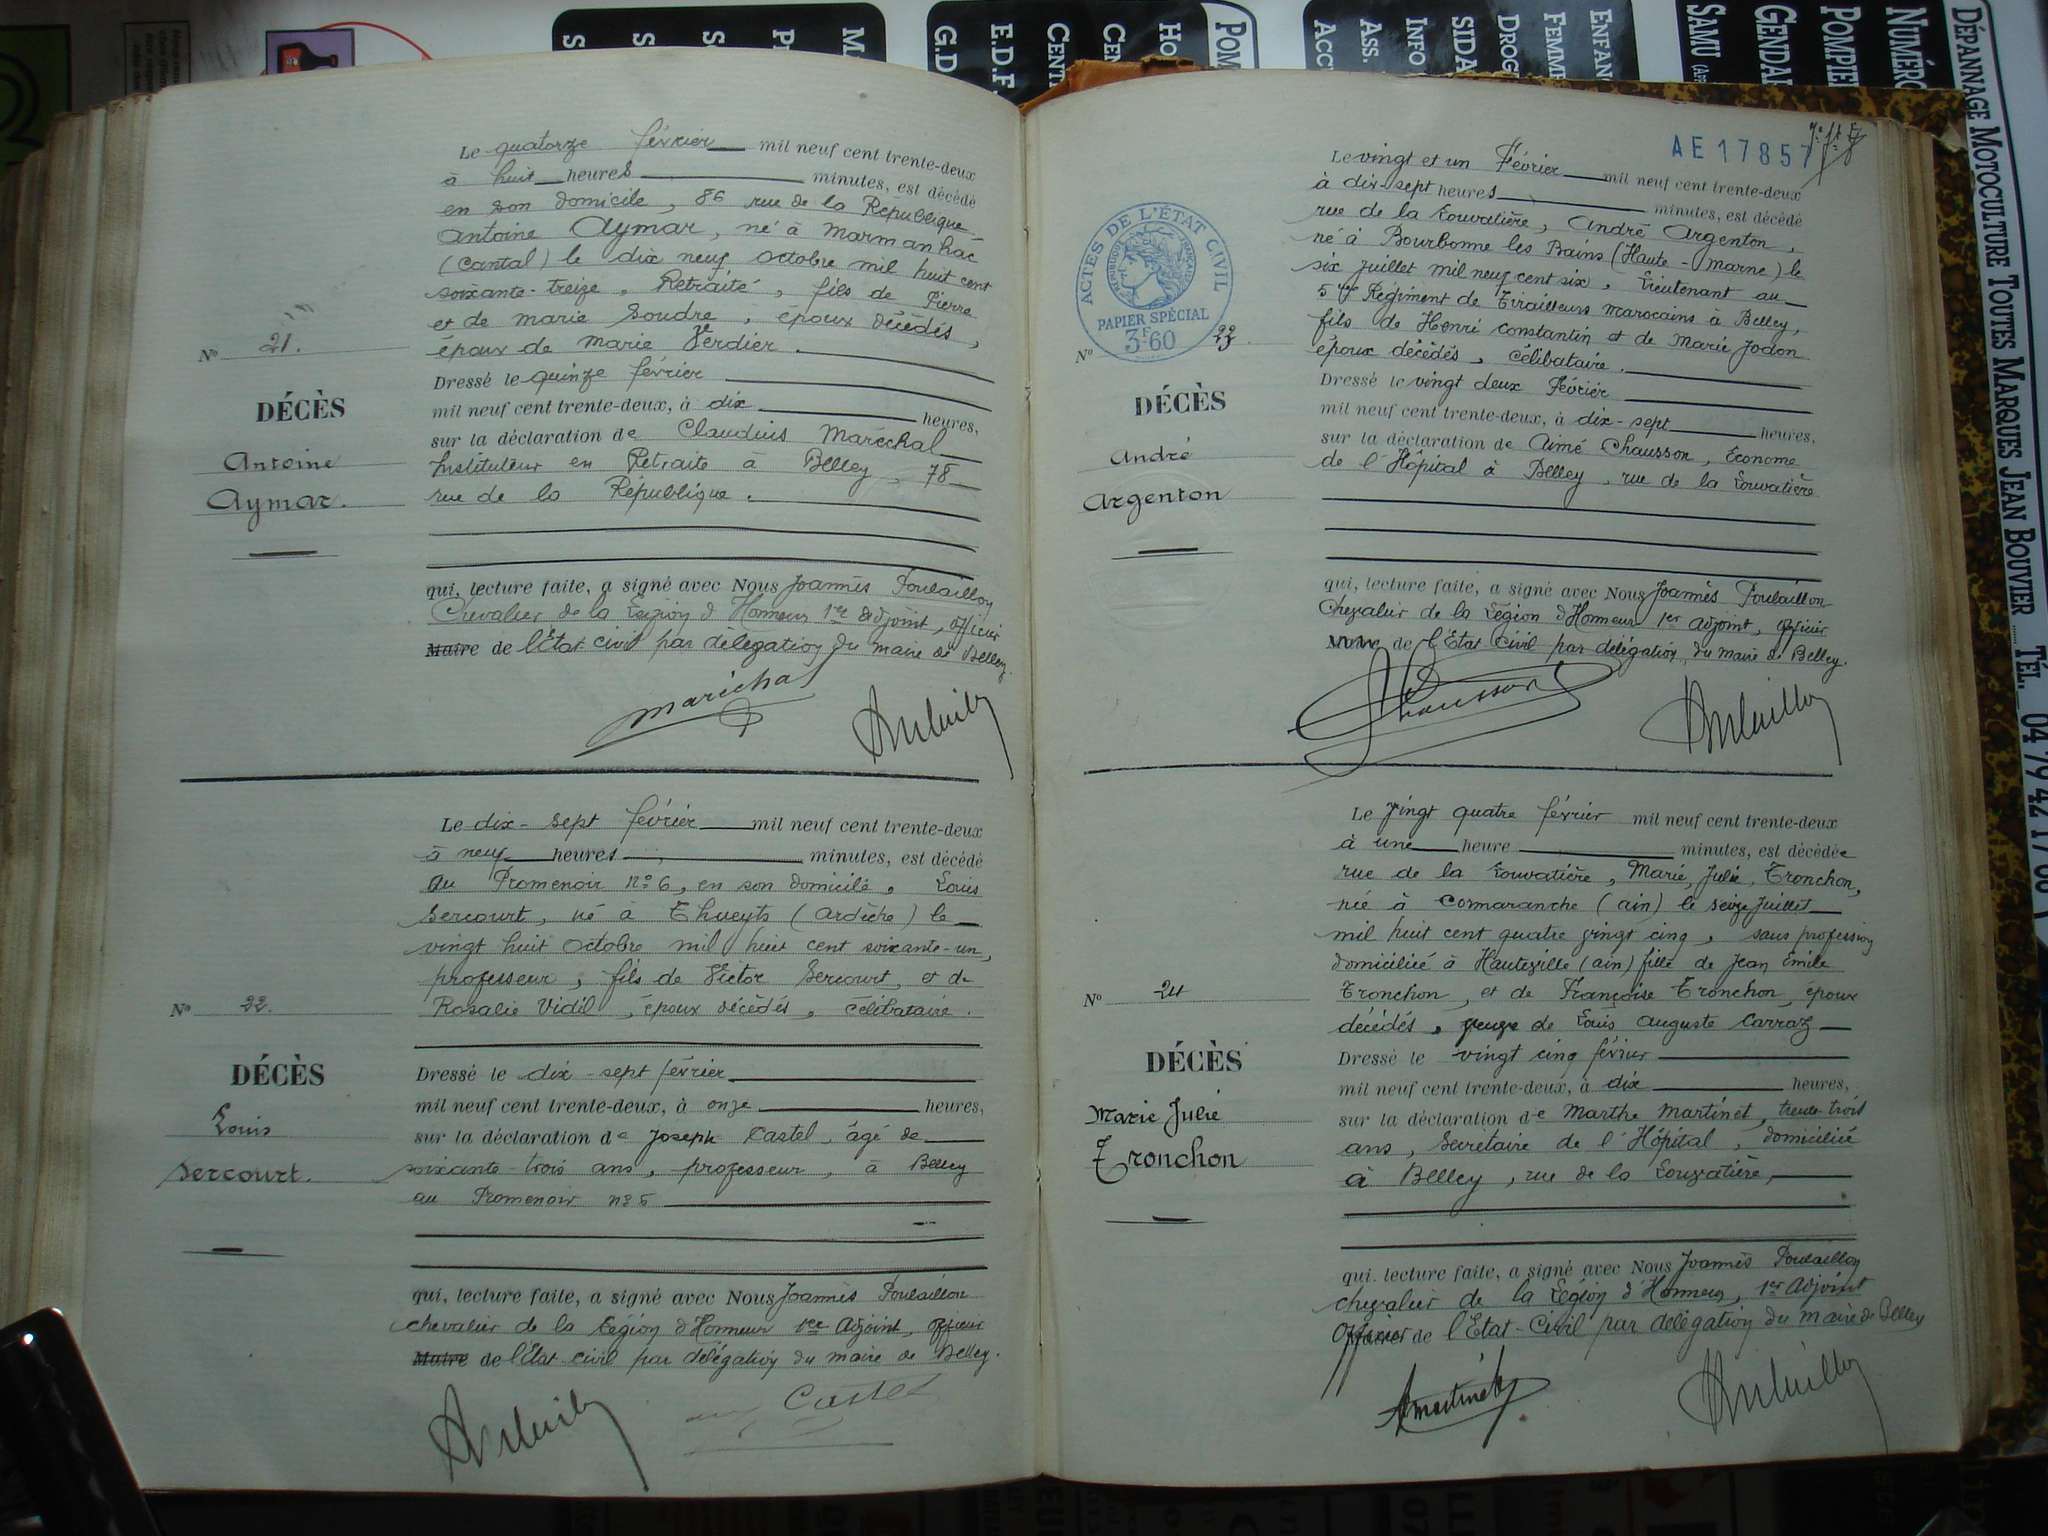 Le quatorze février mil neuf cent trente-deux
à huit heures minutes, est décédé
en son domicile, 86 rue de la République
Antoine Aymar, né à Marmanhac
(Cantal) le dix neuf octobre mil huit cent
soixante-treize, Retraité, fils de Pierre
et de Marie Soudre, époux décédés,
époux de Marie Verdier.
N° 21.
Dressé le quinze février
mil neuf cent trente-deux, à dix heures,
DÉCÈS
sur la déclaration de Claudius Maréchal
Antoine
Instituteur en Retraite à Belley, 78
Aymar.
rue de la République.
qui, lecture faite, a signé avec Nous Joannès Poulaillon
Chevalier de la Légion d'Honneur 1er adjoint, officier
Maire de l'Etat-civil par délégation du maire de Belley.
Maréchal
Poulaillon
Le dix-sept février mil neuf cent trente-deux
à neuf heures minutes, est décédé
au Promenoir n° 6, en son domicile, Louis
Sercourt, né à Thueyts (Ardèche) le
vingt huit octobre mil huit cent soixante-un,
professeur, fils de Victor Sercourt, et de
N° 22.
Rosalie Vidil, époux décédés, célibataire.
DÉCÈS
Dressé le dix-sept février
mil neuf cent trente-deux, à onze heures,
Louis
sur la déclaration de Joseph Castel, âgé de
Sercourt.
soixante-trois ans, professeur, à Belley
au Promenoir n° 5
qui, lecture faite, a signé avec Nous Joannès Poulaillon
chevalier de la Légion d'Honneur 1er Adjoint, officier
Maire de l'Etat-civil par délégation du maire de Belley.
Poulaillon
Castel
AE 17857
Le vingt et un Février mil neuf cent trente-deux
à dix-sept heures minutes, est décédé
rue de la Louvatière, André Argenton,
né à Bourbonne les Bains (Haute-Marne) le
six juillet mil neuf cent six, Lieutenant au
5me Régiment de Tirailleurs marocains à Belley,
fils de Henri Constantin et de Marie Jodon
époux décédés, célibataire.
ACTES DE L'ÉTAT CIVIL
RÉPUBLIQUE FRANÇAISE
PAPIER SPÉCIAL
3F60
N° 23
DÉCÈS
André
Argenton
Dressé le vingt deux Février
mil neuf cent trente-deux, à dix-sept heures,
sur la déclaration de Aimé Chausson, Econome
de l'Hôpital à Belley, rue de la Louvatière
qui, lecture faite, a signé avec Nous Joannès Poulaillon
Chevalier de la Légion d'Honneur 1er adjoint, officier
Maire de l'Etat-Civil par délégation du maire de Belley.
Chausson
Poulaillon
Le vingt quatre février mil neuf cent trente-deux
à une heure minutes, est décédée
rue de la Louvatière, Marie, Julie, Tronchon,
née à Cormaranche (Ain) le seize Juillet
mil huit cent quatre vingt cinq, sans profession
domiciliée à Hauteville (Ain) fille de Jean Emile
N° 24
Tronchon, et de Françoise Tronchon, époux
décédés, veuve de Louis Auguste Carraz
DÉCÈS
Dressé le vingt cinq février
mil neuf cent trente-deux, à dix heures,
Marie Julie
sur la déclaration de Marthe Martinet, trente-trois
Tronchon
ans, Secrétaire de l'Hôpital, domiciliée
à Belley, rue de la Louvatière,
qui, lecture faite, a signé avec Nous Joannès Poulaillon
chevalier de la Légion d'Honneur, 1er Adjoint
Officier de l'Etat-Civil par délégation du maire de Belley
Martinet
Poulaillon
DÉPANNAGE MOTOCULTURE TOUTES MARQUES JEAN BOUVIER
TÉL.
SAMU
POMPIE
NUMÉRO
GENDA
ENFAN
FEMME
DROG
SIDA
INFO
ASS.
ACC
POM
HO
CE
CENT
E.D.F.
G.D